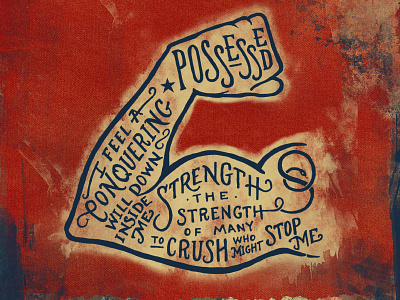 I FEEL A
CONQUERING
WILL DOWN
INSIDE
ME
★ POSSESSED
STRENGTH
· THE ·
STRENGTH
OF MANY
TO CRUSH WHO MIGHT
STOP ME